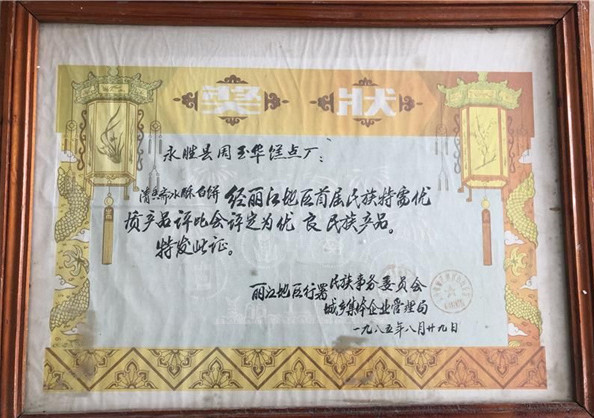 奖状
永胜县周玉华糕点厂：
清真斋冰酥白饼 经丽江地区首届民族特需优
质产品评比会评定为优良民族产品。
特发此证。
丽江地区行署民族事务委员会
城乡集体企业管理局
一九八五年八月廿九日